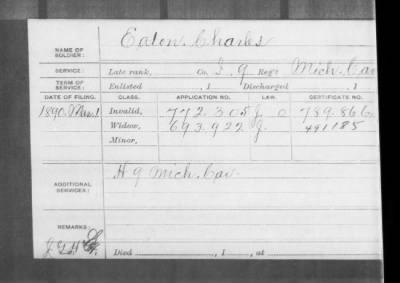 Eaton, Charles
NAME OF SOLDIER:
SERVICE: Late rank, Co. I, 9 Reg't Mich. Cav
TERM OF SERVICE: Enlisted , 1 Discharged , 1
DATE OF FILING. CLASS. APPLICATION NO. LAW. CERTIFICATE NO.
1890. Invalid, 772.305 789.866
Widow, 693.922 491185
Minor,
ADDITIONAL SERVICES: H 9 Mich. Cav.
REMARKS:
Died , 1 , at